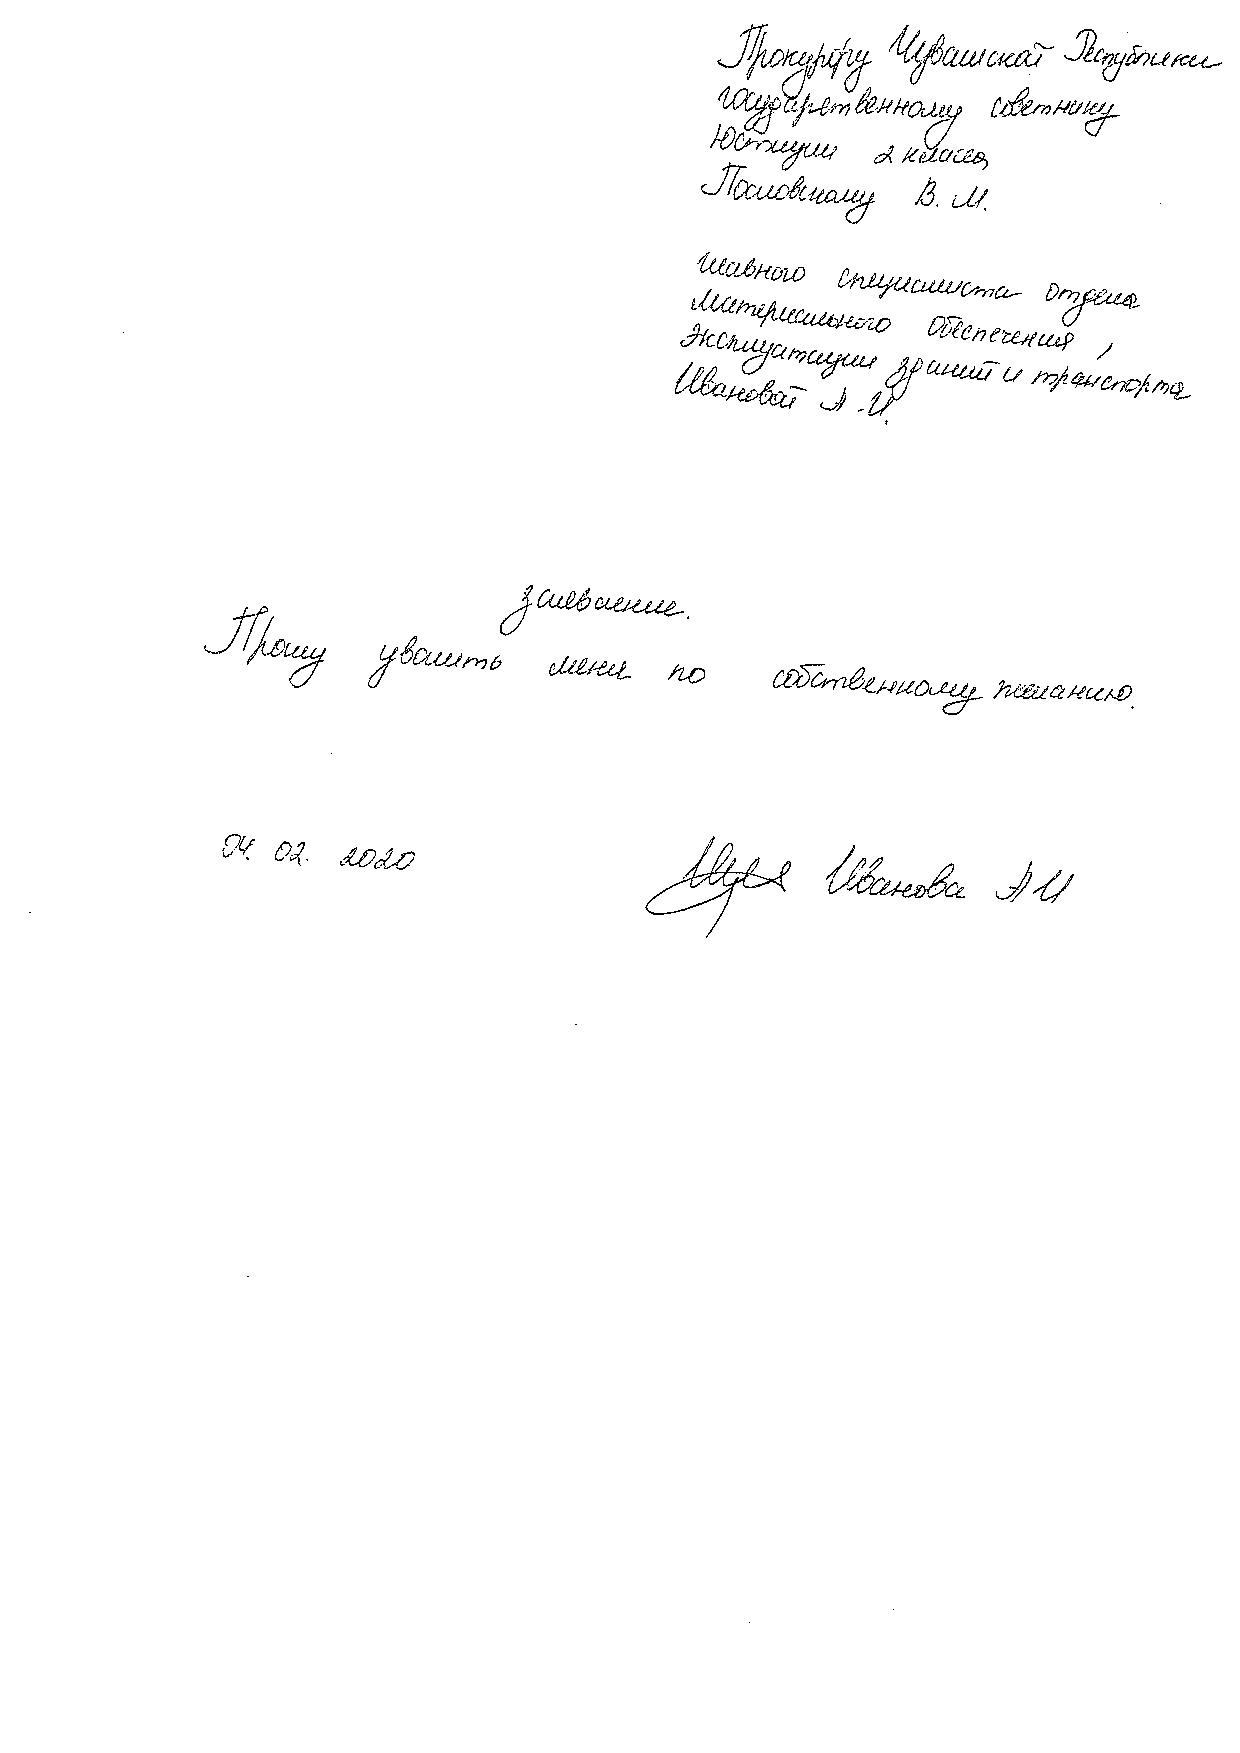 Прокурору Чувашской Республики
государственному советнику
Юстиции 2 класса
Пословскому В. М.
главного специалиста отдела
материального обеспечения,
эксплуатации зданий и транспорта
Ивановой А.И.
заявление.
Прошу уволить меня по собственному желанию.
04. 02. 2020
Иванова А И